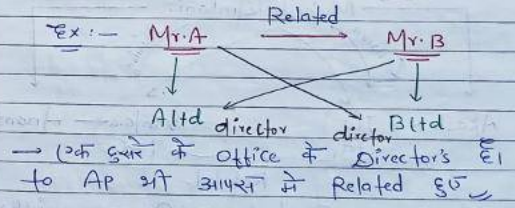 Related
Ex :- Mr.A Mr.B
A ltd director director B ltd
→ एक दुसरे के office के Director's हैं।
to AP भी आपस मे Related हुए